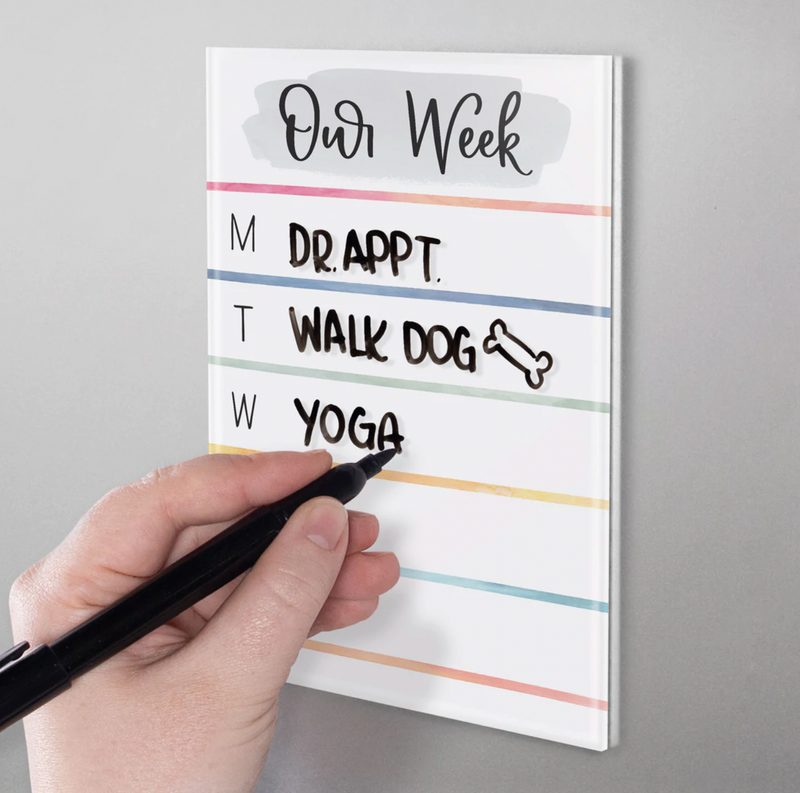 Our Week
M DR. APPT.
T WALK DOG
W YOGA